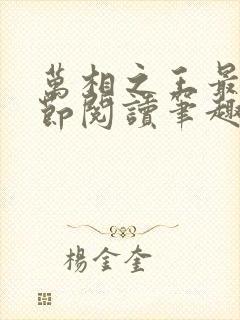 萬相之王最
節閱讀筆趣
楊金奎